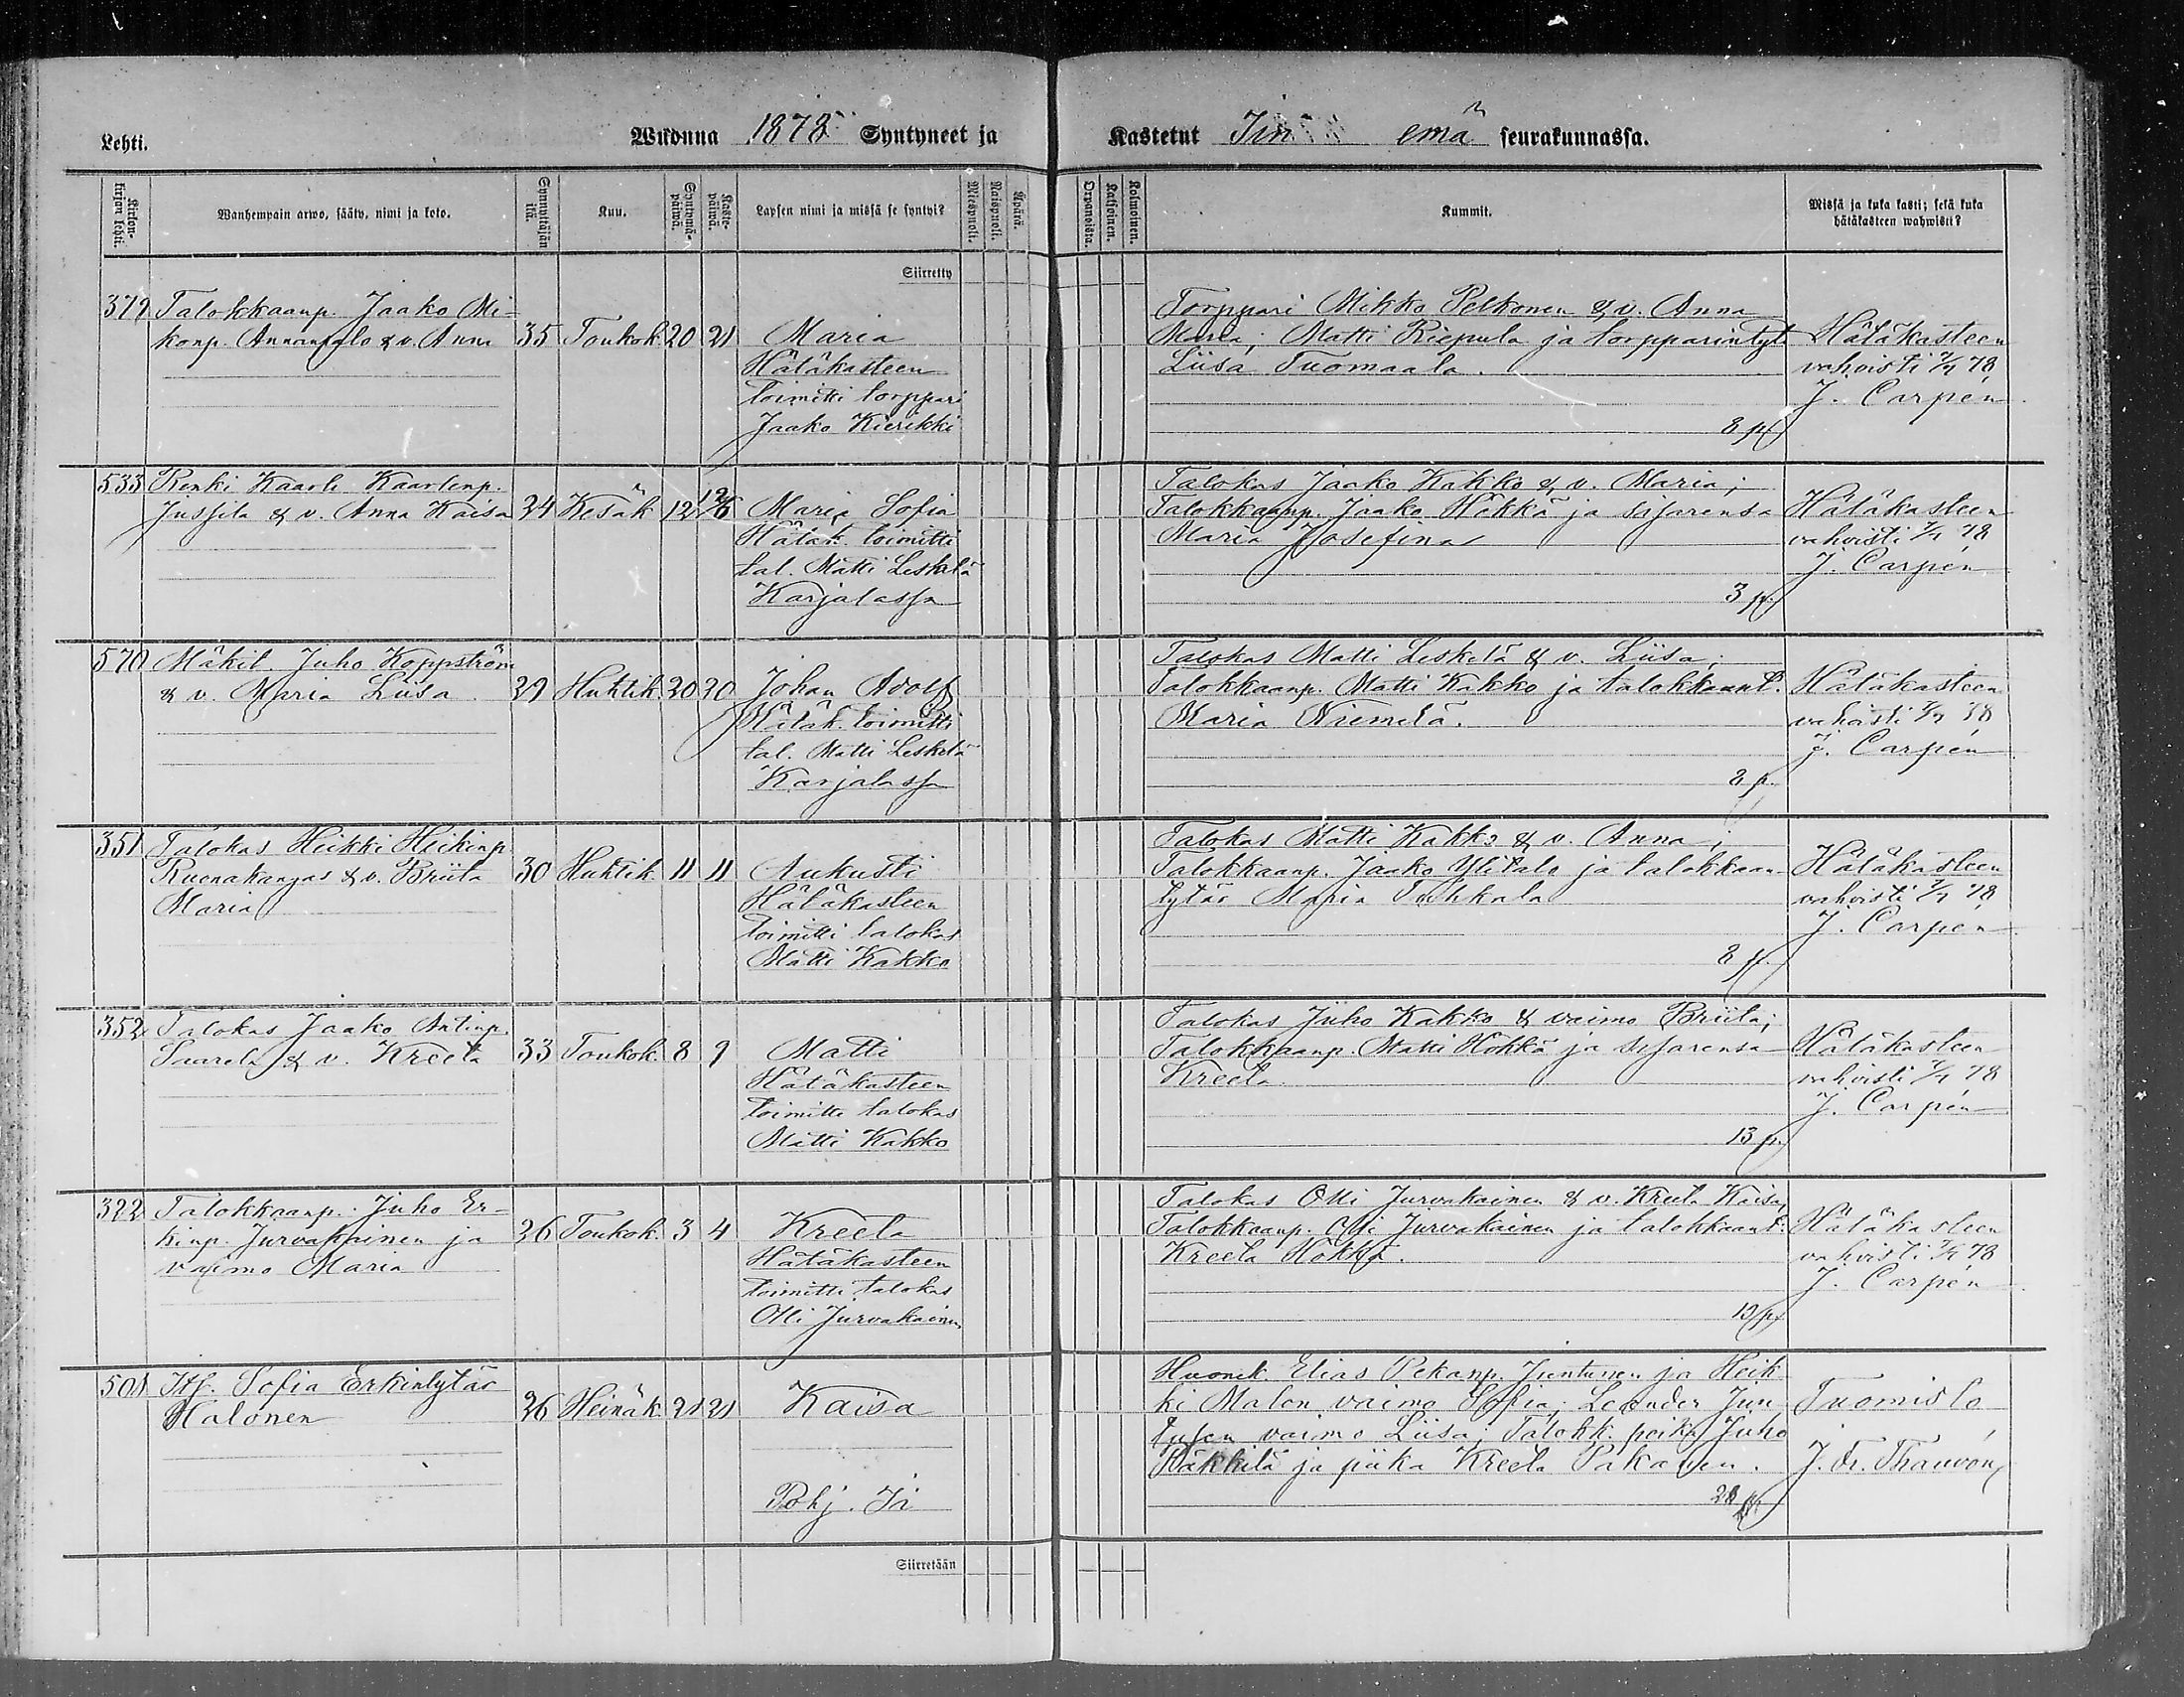 Lehti.
Wuonna 1878 Syntyneet ja
Kastetut Iin emä seurakunnassa.
Kirkonkirjan lehti.
Wanhempain arwo, sääty, nimi ja koto.
Synnyttäjän ikä.
Kuu.
Syntymäpäiwä.
Kastepäiwä.
Lapsen nimi ja missä se syntyi?
Miespuoli.
Waispuoli.
Äpärä.
Orpanoista.
Kaksoinen.
Kolmoinen.
Kummit.
Missä ja kuka kasti; sekä kuka
hätäkasteen wahwisti?
Siirretty
379 Talokkaanp. Jaako Mi-
konp. Annanpalo & v. Anna 35 Toukok. 20 21 Maria
Hätäkasteen
toimitti torppari
Jaako Kierikki
Torppari Mikko Pelkonen & v. Anna
Maria; Matti Riepula ja torpparintyt
Liisa Tuomaala.
8 p
Hätäkasteen
vahvisti 7/7 78
J. Carpén
533 Renki Kaarle Kaarlenp.
Jussila & v. Anna Kaisa 24 Kesäk 12 12/6 Maria Sofia
Hätäk. toimitti
tal. Matti Leskelä
Karjalassa
Talokas Jaako Kakko & v. Maria;
Talokkaanp. Jaako Hökkä ja sisarensa
Maria Josefina
3 p.
Hätäkasteen
vahvisti 7/7 78
J. Carpén
570 Mäkit. Juho Koppström
& v. Maria Liisa. 29 Huhtik. 20 20 Johan Adolf
Hätäk. toimitti
tal. Matti Leskelä
Karjalassa
Talokas Matti Leskelä & v. Liisa;
Talokkaanp. Matti Kakko ja talokkaant.
Maria Niemelä.
8 p.
Hätäkasteen
vahvisti 7/7 78
J. Carpén
351 Talokas Heikki Heikinp
Ruonakangas & v. Briita 30 Huhtik. 11 11 Aukusti
Maria
Hätäkasteen
toimitti talokas
Matti Kakko
Talokas Matti Kakko & v. Anna;
Talokkaanp. Jaako Ylitalo ja talokkaan
tytär Maria Tuhkala
8 p.
Hätäkasteen
vahvisti 7/7 78
J. Carpén
352 Talokas Jaako Antinp.
Saarela & v. Kreeta 33 Toukok. 8 9 Matti
Hätäkasteen
toimitti talokas
Matti Kakko
Talokas Juho Kakko & vaimo Briita;
Talokkaanp. Matti Hökkä ja sisarensa
Kreeta.
13 p.
Hätäkasteen
vahvisti 7/7 78
J. Carpén
322 Talokkaanp. Juho Er-
kinp. Jurvakainen ja 26 Toukok. 3 4 Kreeta
vaimo Maria
Hätäkasteen
toimitti talokas
Olli Jurvakainen
Talokas Olli Jurvakainen & v. Kreeta Kaisa,
Talokkaanp. Olli Jurvakainen ja talokkaant.
Kreeta Hökkä.
13 p
Hätäkasteen
vahvisti 7/7 78
J. Carpén
501 Itf. Sofia Erkintytär
Halonen 26 Heinäk. 21 21 Kaisa
Pohj. Ii
Huonek. Elias Pekanp. Juntunen ja Heik
ki Malon vaimo Sofia; Leander Jun
tusen vaimo Liisa; Talokk. poika Juho
Häkkilä ja piika Kreeta Pakanen.
Tuomisto
J. Fr. Thauvón
Siirretään